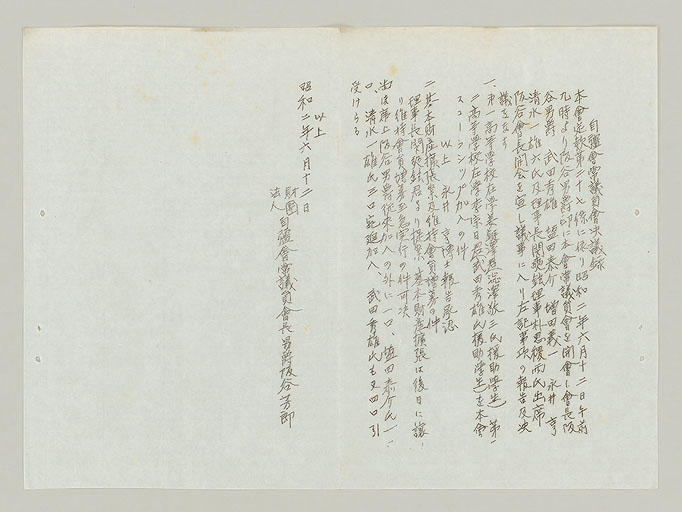 自彊會常議員會決議録
本會定款第二十七條に依り昭和二年六月十二日午前
九時より阪谷男爵邸に本會常議員會を開會し會長阪
谷男爵 武田秀雄 益田泰介 増田義一 永井 亨
清水一雄六氏及理事長関 理事朴思稷両氏出席
阪谷會長開會を宣し議事に入り左記事項の報告及決
議をなす
一、第一高等學校在學 澤敬三氏援助學生 第一
高等學校在學 武田秀雄氏援助學生を本會
スコーラシップ加入の件
以上 永井 亨博士報告承認
二、基本財産擴張案及維持會員増募の件
理事長関 君より提案基本財産擴張は後日に譲
り維持會員増募至急実行の件可決
尚ほ席上阪谷男爵従来加入の外に一口、益田泰介氏一
口、清水一雄氏三口宛追加入 武田秀雄氏も又四口引
受けらる
以上
昭和二年六月十二日
財團
法人 自彊會常議員會長 男爵阪谷芳郎